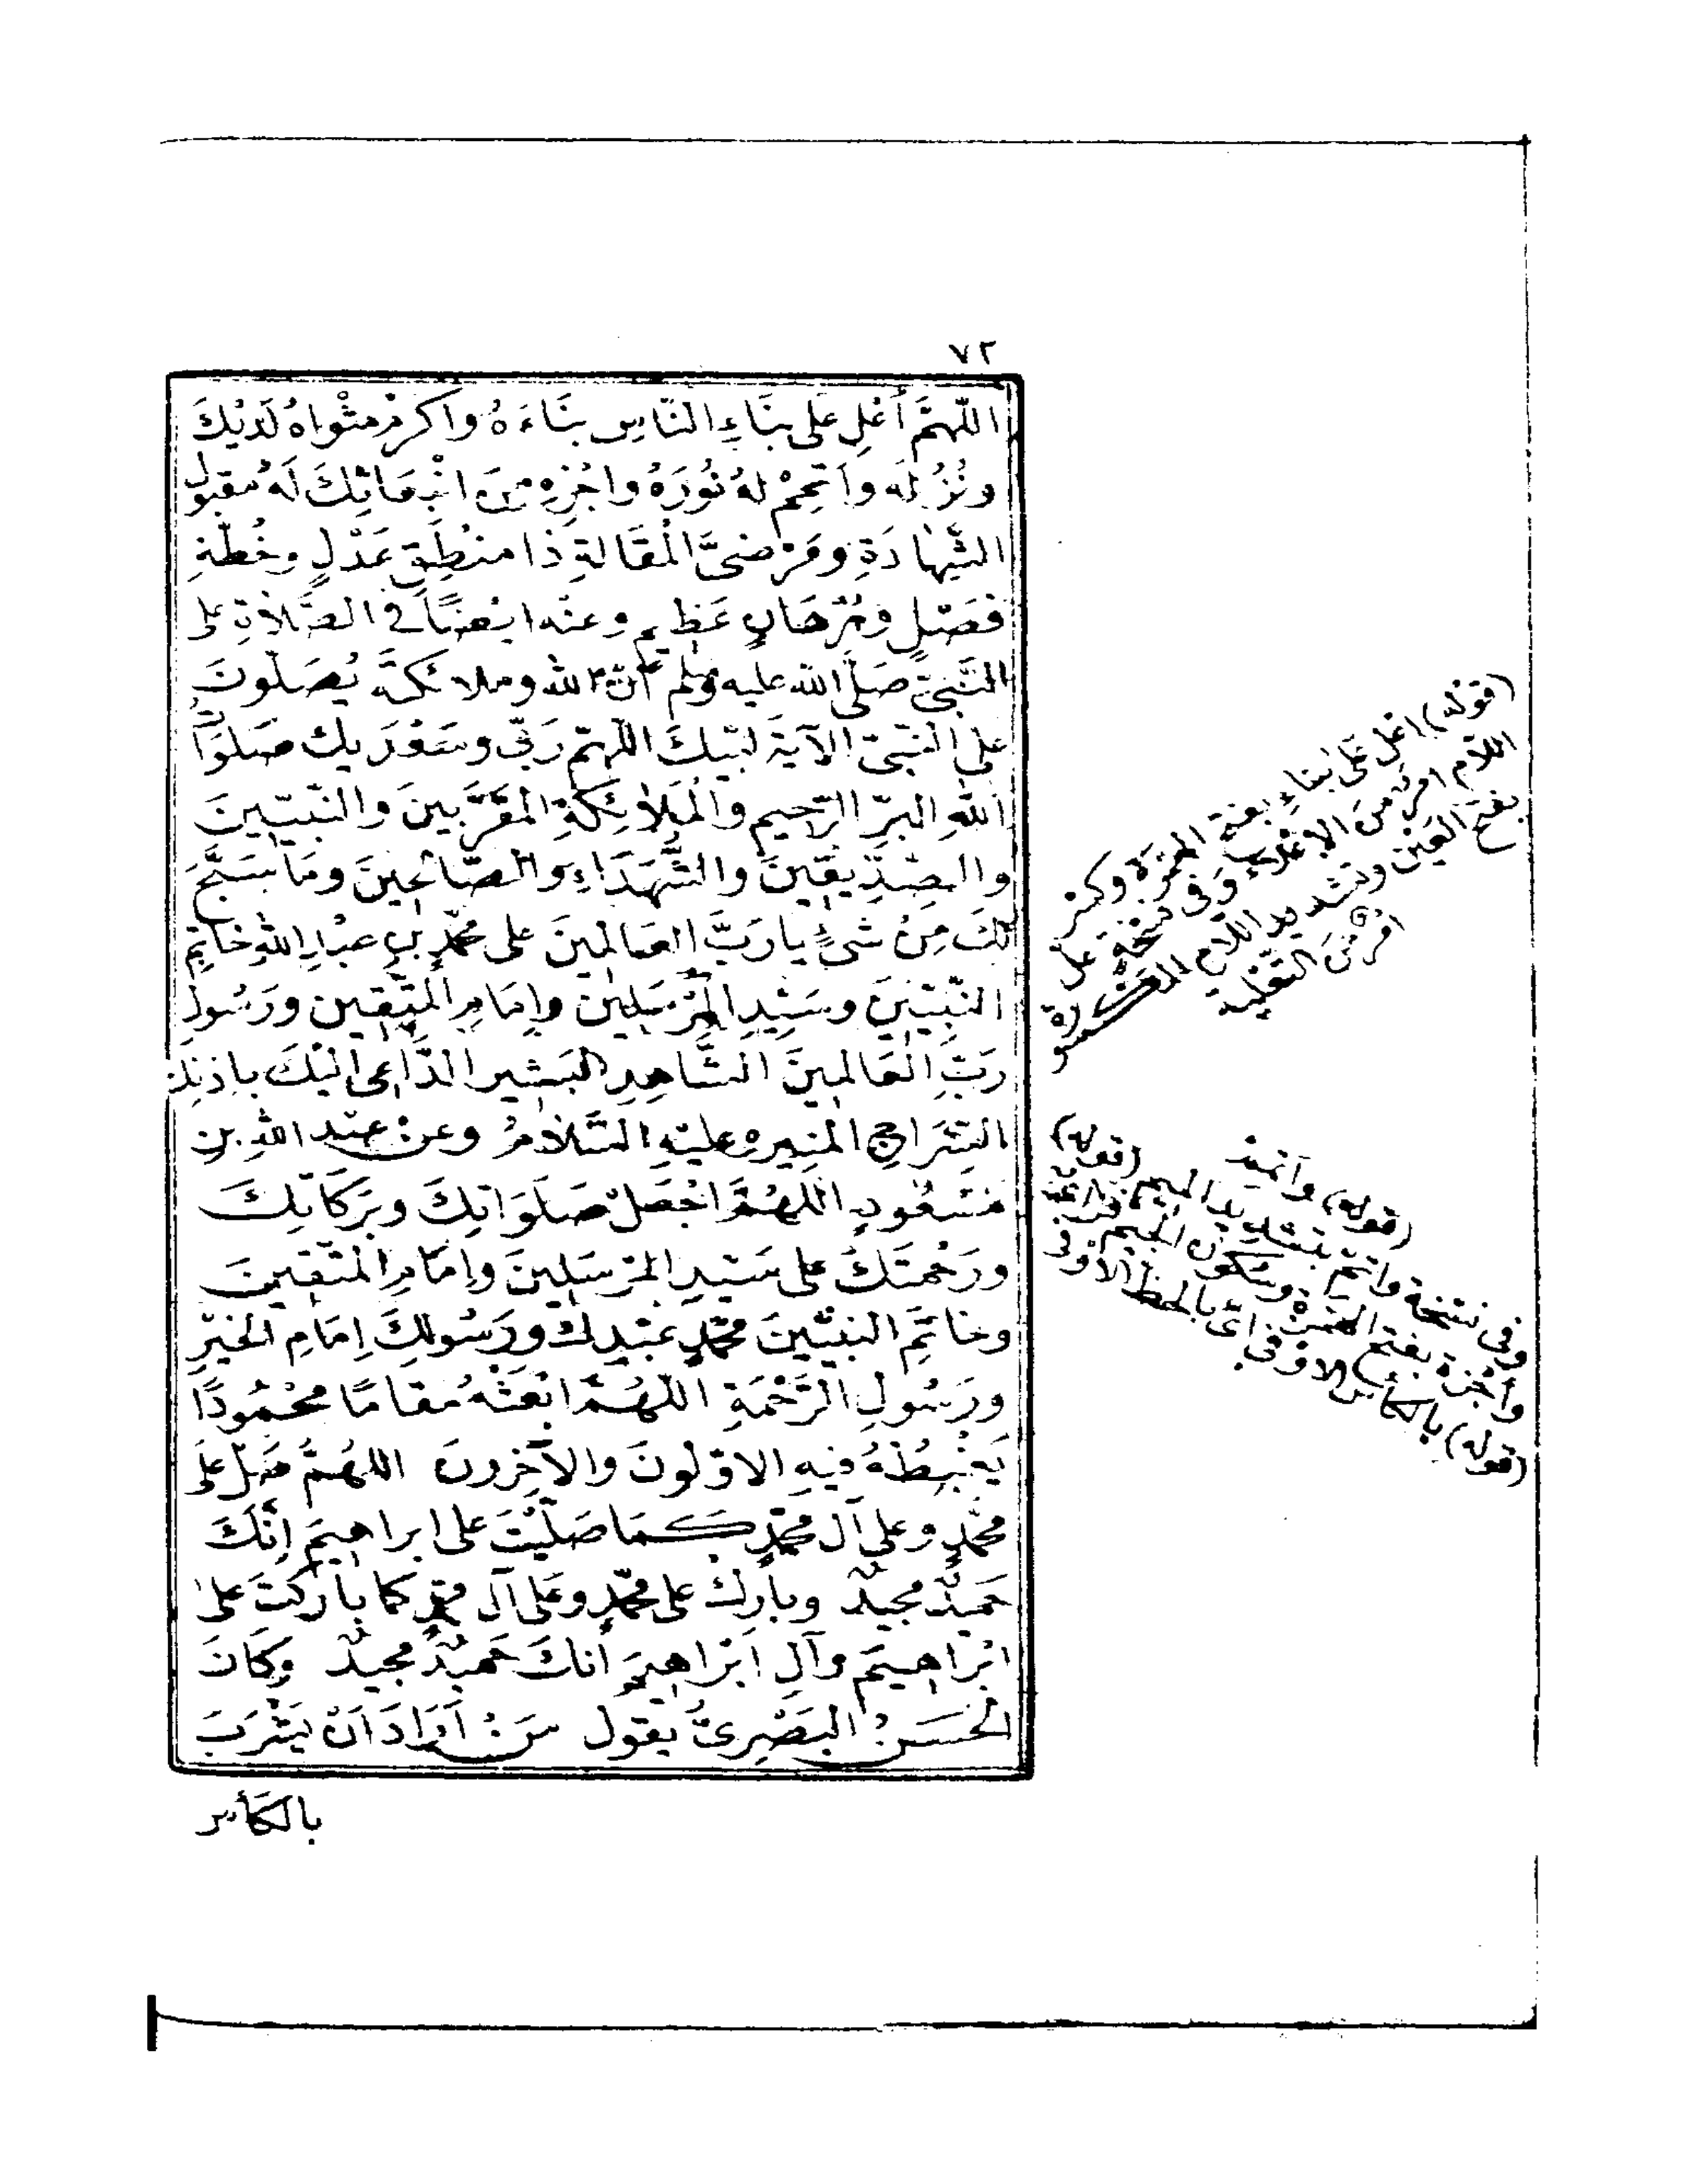 ٧٢
اللّهمَّ أَعْلِ على بنَاءِ النّاسِ بنَاءَهُ واكرمْ مثْواهُ لَدَيْكَ
ونُزُلَه واَتمِمْ لهُ نُورَهُ واجْزِهِ مِنَ ابْتِعَاثِكَ لَهُ مقبول
الشّهادَةِ ومَرْضىَّ الْمقَالةِ ذا منطِقٍ عَدْلٍ وخُطّةِ
فَصْلٍ وبُرْهَانٍ عَظِيمٍ وعنْه ايْضًا فى الصّلاةِ على
النّبىّ صَلَّى الله عليه وسلم انّ الله وملائكتَه يُصَلّونَ
على النّبىّ الآيةَ لبّيكَ اللّهمّ رَبّى وسَعْدَيك صَلَوَاتُ
اللهِ البَرّ الرّحيمِ والْمَلاَئِكَةِ المقَرّبينَ والنّبيّينَ
والصِدّيقينَ والشّهَدَاءِ والصّالحِينَ ومَا سَبّحَ
لكَ مِنْ شىءٍ يارَبَّ العَالمينَ على محمّدٍ بنِ عبْدِ اللهِ خاتِمِ
النّبيّينَ وسَيّدِ المرْسَلينَ وإمَامِ المتّقين ورَسُولِ
رَبِّ العَالمينَ الشَّاهِدِ البَشيرِ الدّاعى اليْكَ باذنِك
السّرَاجِ المنِيرِ وعليْهِ السّلاَمُ وعنْ عبْدِ اللهِ بنِ
مَسْعُودٍ اللهُمَّ اجْعَلْ صَلَوَاتِكَ وبَرَكَاتِكَ
ورَحْمَتَكَ على سَيّدِ المرْسَلِينَ وإمَامِ المتّقِينَ
وخَاتِمِ النبيّينَ محمّدٍ عَبْدِكَ ورَسُولِكَ اِمَامِ الخيْرِ
ورَسُولِ الرّحْمَةِ اللهُمَّ ابْعَثْهُ مقامًا محْمُودًا
يَغْبِطُهُ فيهِ الاوّلونَ والآخِرونَ اللهُمَّ صَلِّ على
محمّدٍ وعلى آل محمّدٍ كمَا صَلّيْتَ على ابراهيمَ إنّكَ
حَميدٌ مجيدٌ وبارِك على محمّدٍ وعَلى آل محمّدٍ كما بارَكتَ على
ابْرَاهيمَ وآلِ اِبْرَاهيمَ انكَ حَميدٌ مجيدٌ وكَانَ
الحسَنُ البَصْرِىّ يقول مَنْ اَرَادَ اَنْ يَشْرَبَ
بالكَأسِ
(قوله) اعل على بناء بفتح الهمزة وكسر
اللام امر من الاعلاء وفى نسخة عل
بفتح العين وتشديد اللام المكسورة
امر من التعلية
(قوله) واتمم
وفى نسخة واتم بتشديد الميم (قوله)
واجزه بفتح الهمزة وسكون الجيم
(قوله) بالكأس الاوفى اى بالحظ الاوفى